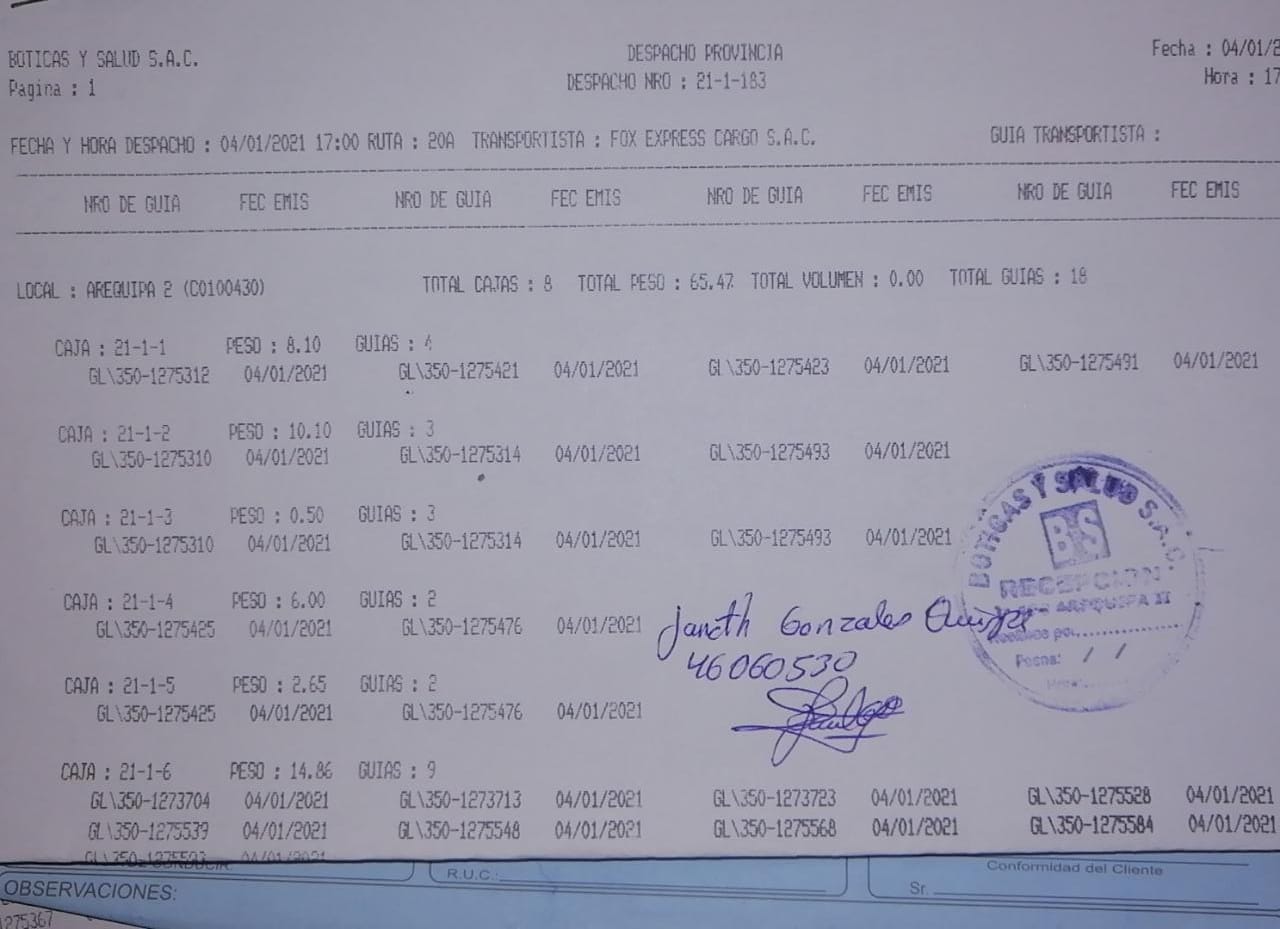 BOTICAS Y SALUD S.A.C. DESPACHO PROVINCIA Fecha : 04/01/2
Pagina : 1 DESPACHO NRO : 21-1-183 Hora : 17
FECHA Y HORA DESPACHO : 04/01/2021 17:00 RUTA : 20A TRANSPORTISTA : FOX EXPRESS CARGO S.A.C. GUIA TRANSPORTISTA :
NRO DE GUIA FEC EMIS NRO DE GUIA FEC EMIS NRO DE GUIA FEC EMIS NRO DE GUIA FEC EMIS
LOCAL : AREQUIPA 2 (C0100430) TOTAL CAJAS : 8 TOTAL PESO : 65.47 TOTAL VOLUMEN : 0.00 TOTAL GUIAS : 18
CAJA : 21-1-1 PESO : 8.10 GUIAS : 4
GL\350-1275312 04/01/2021 GL\350-1275421 04/01/2021 GL\350-1275423 04/01/2021 GL\350-1275491 04/01/2021
CAJA : 21-1-2 PESO : 10.10 GUIAS : 3
GL\350-1275310 04/01/2021 GL\350-1275314 04/01/2021 GL\350-1275493 04/01/2021
CAJA : 21-1-3 PESO : 0.50 GUIAS : 3
GL\350-1275310 04/01/2021 GL\350-1275314 04/01/2021 GL\350-1275493 04/01/2021
BOTICAS Y SALUD S.A.C.
BS
RECEPCION
AREQUIPA II
por
Fecha: / /
CAJA : 21-1-4 PESO : 6.00 GUIAS : 2
GL\350-1275425 04/01/2021 GL\350-1275476 04/01/2021
Janeth Gonzales Quispe
46060530
CAJA : 21-1-5 PESO : 2.65 GUIAS : 2
GL\350-1275425 04/01/2021 GL\350-1275476 04/01/2021
CAJA : 21-1-6 PESO : 14.86 GUIAS : 9
GL\350-1273704 04/01/2021 GL\350-1273713 04/01/2021 GL\350-1273723 04/01/2021 GL\350-1275528 04/01/2021
GL\350-1275539 04/01/2021 GL\350-1275548 04/01/2021 GL\350-1275568 04/01/2021 GL\350-1275584 04/01/2021
04/01/2021
R.U.C.: Conformidad del Cliente
OBSERVACIONES: Sr.
1275367